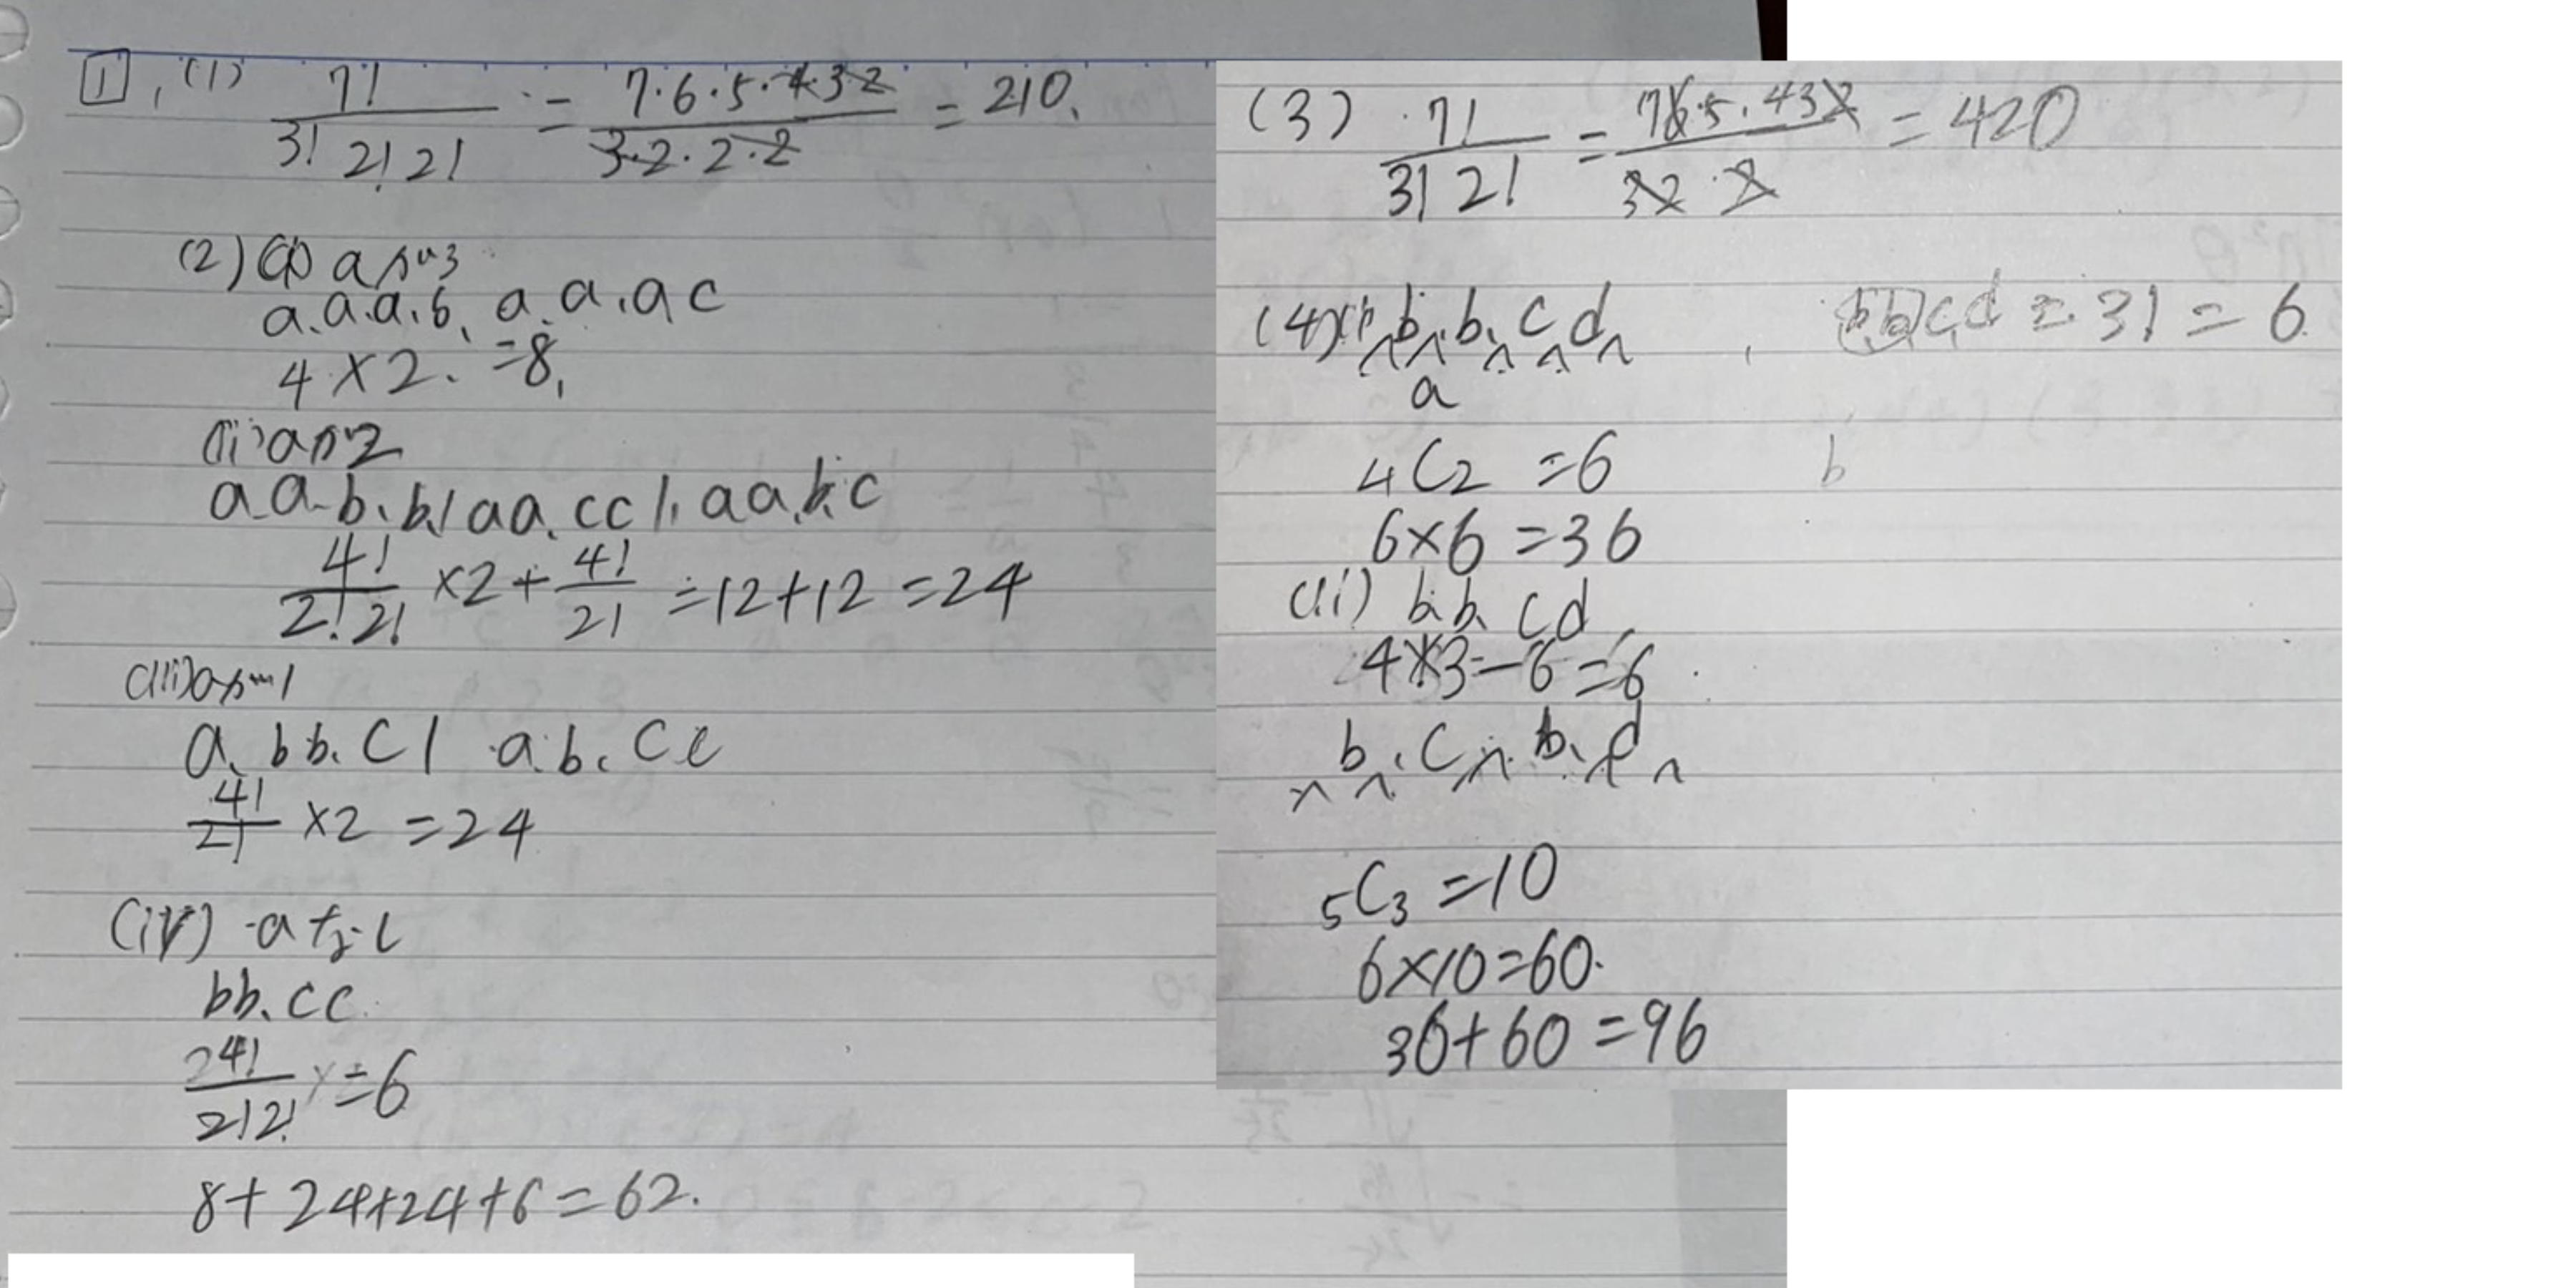 1, (1) 7! / 3! 2! 2! = 7·6·5·4·3·2 / 3·2·2·2 = 210.
(2) (i) aが3
a.a.a.b, a.a.a c
4×2 =8,
(ii) aが2
a a b, b, / aa, cc /, aa, b, c
4! / 2! 2! ×2 + 4! / 2! = 12+12 = 24
(iii) aが1
a, bb, c / a b, c c
4! / 2! ×2 = 24
(iv) aなし
bb, cc
4! / 2! 2! = 6
8+24+24+6=62.
(3) 7! / 3! 2! = 7 6·5·4 3 2 / 3 2·2 = 420
(4) (i) ^ b ^ b ^ c ^ d ^ , bb c d = 3! = 6
a
4C2 = 6 b
6×6 = 36
(ii) b b, c d
4×3-6=6
^ b ^ c ^ b ^ d ^
5C3 = 10
6×10=60.
36+60=96